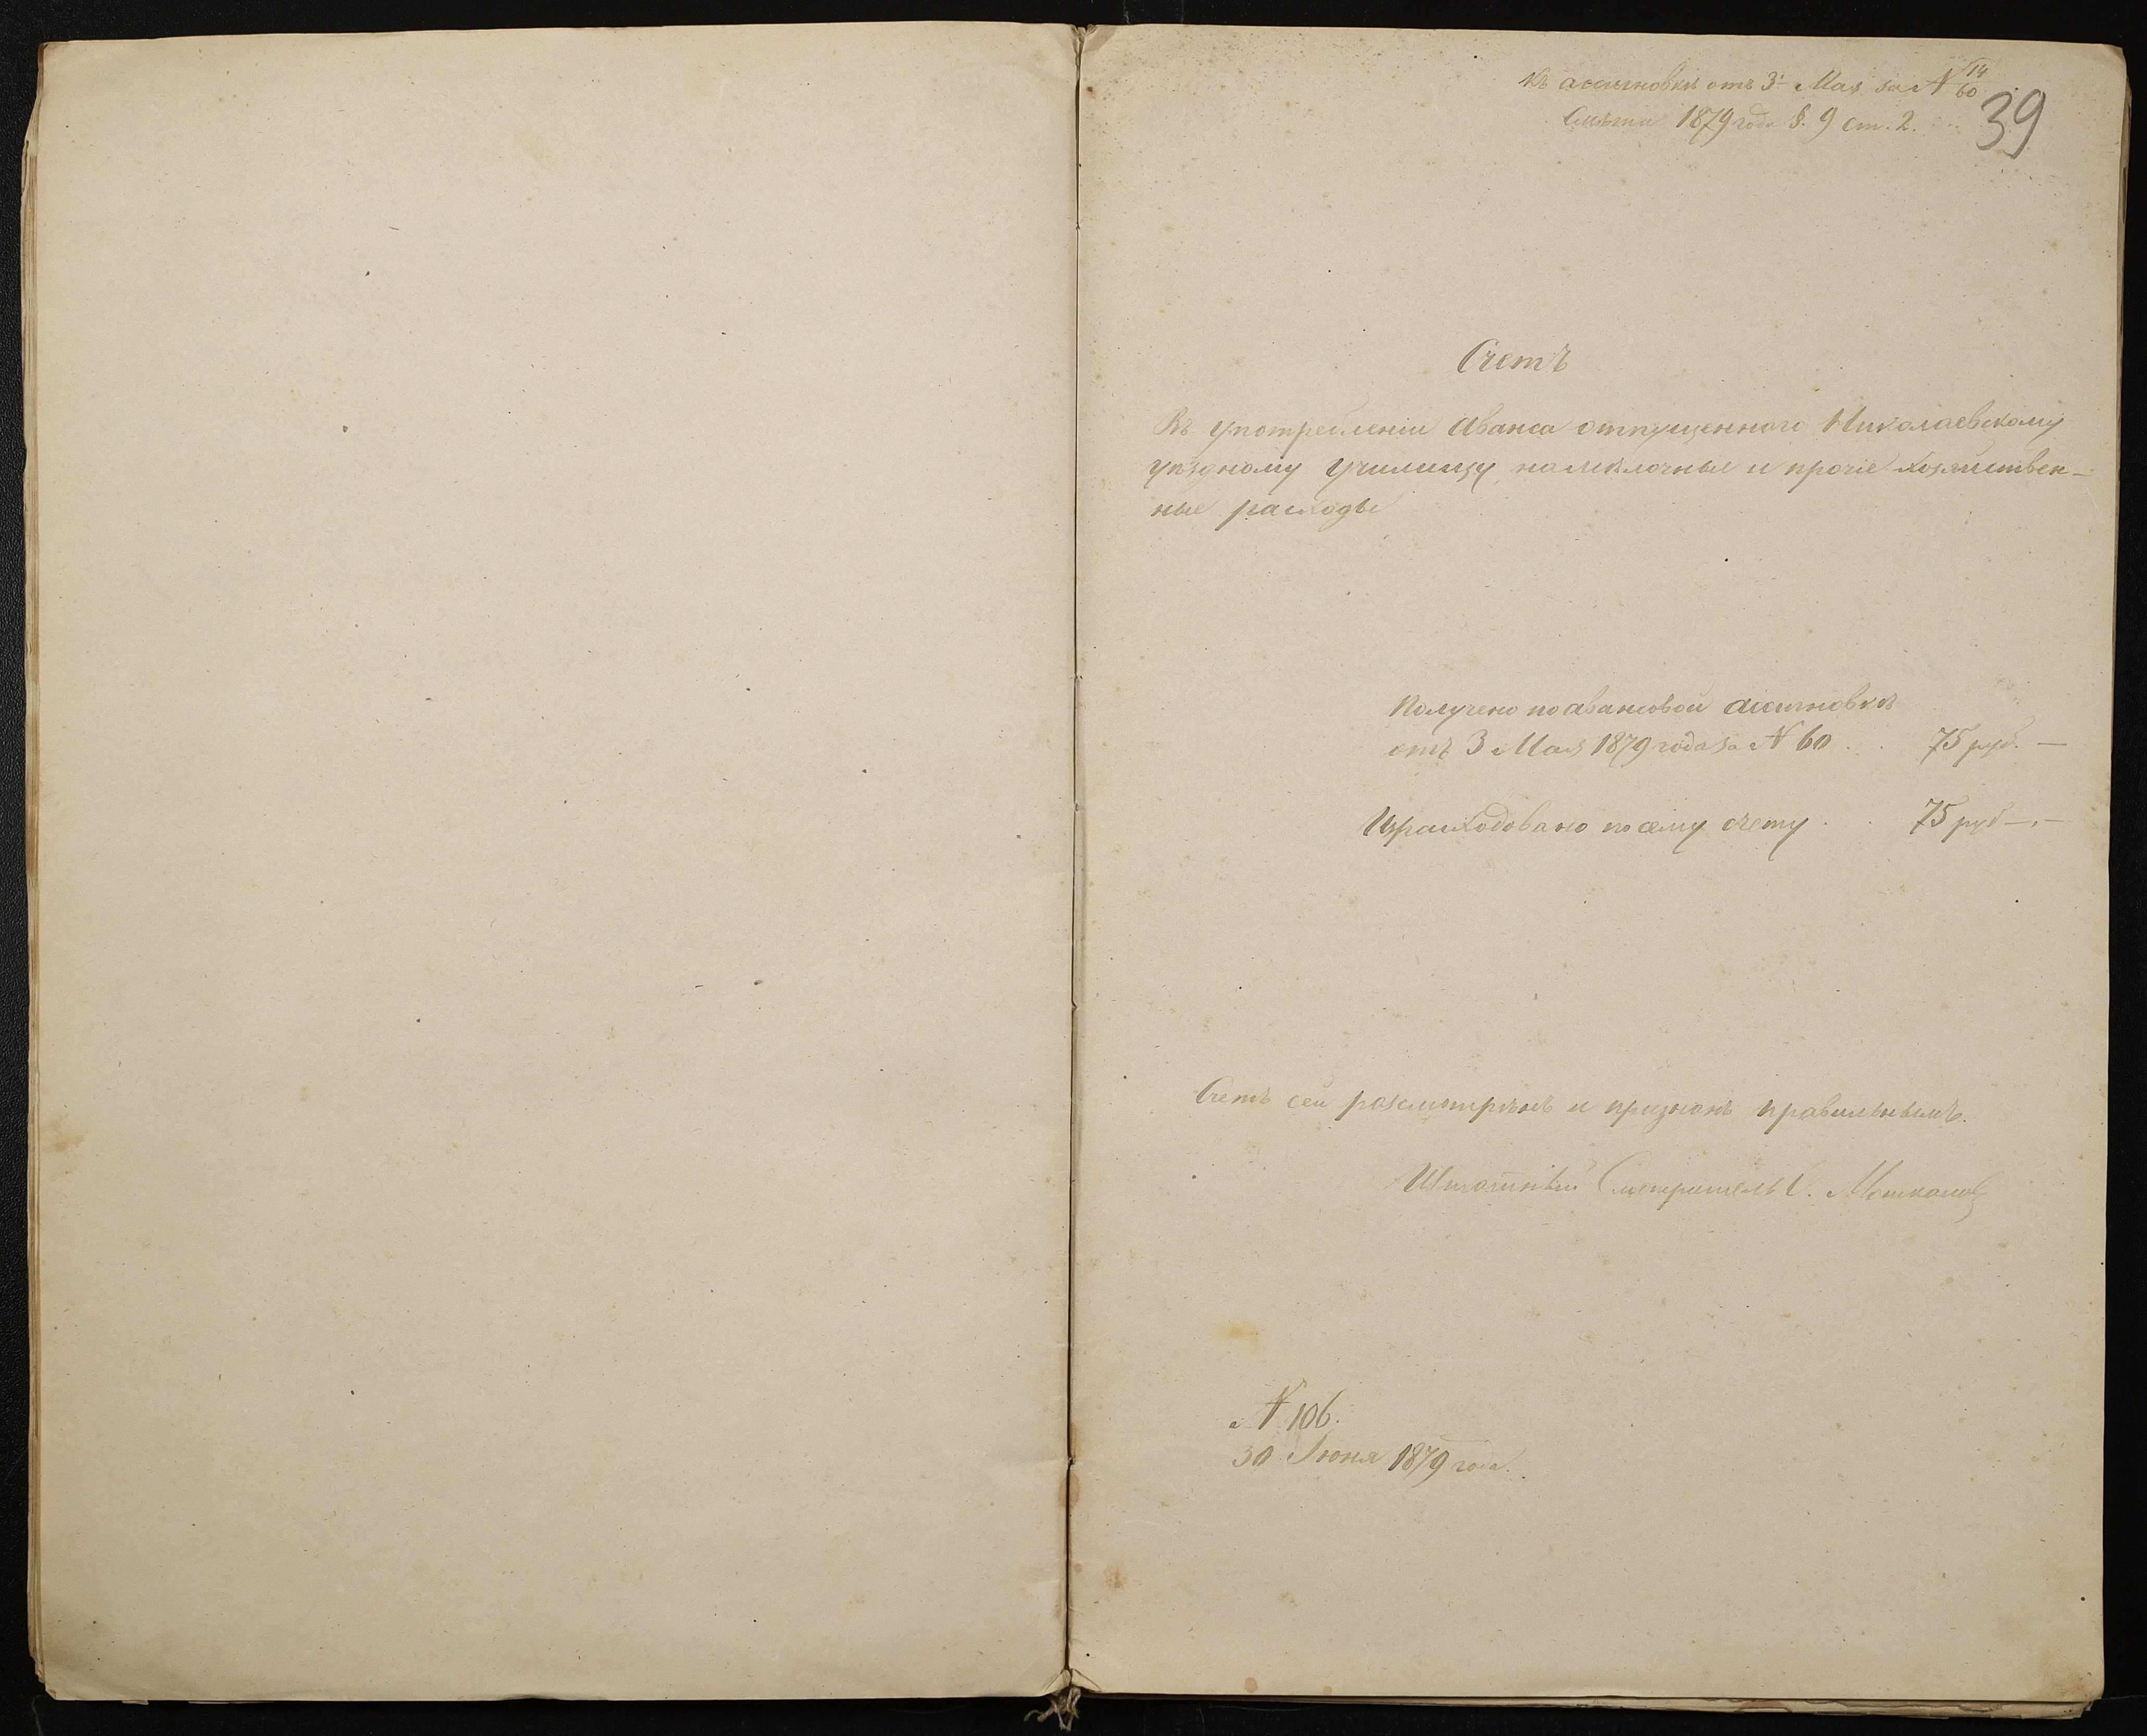 Къ ассигновкѣ отъ 3го Мая за № 14/60
Смѣты 1879 года §. 9 ст. 2.
39
Счетъ
Въ употребленіи аванса отпущеннаго Николаевскому
уѣздному училищу на мѣлочные и прочіе хозяйствен-
ные расходы
Получено по авансовой ассигновкѣ
отъ 3 Мая 1879 года за № 60 . . 75 руб. —
Израсходовано по сему счету . . 75 руб —.—
Счетъ сей разсмотрѣнъ и признанъ правильнымъ.
Штатный Смотритель
№ 106.
30 Іюня 1879 года.